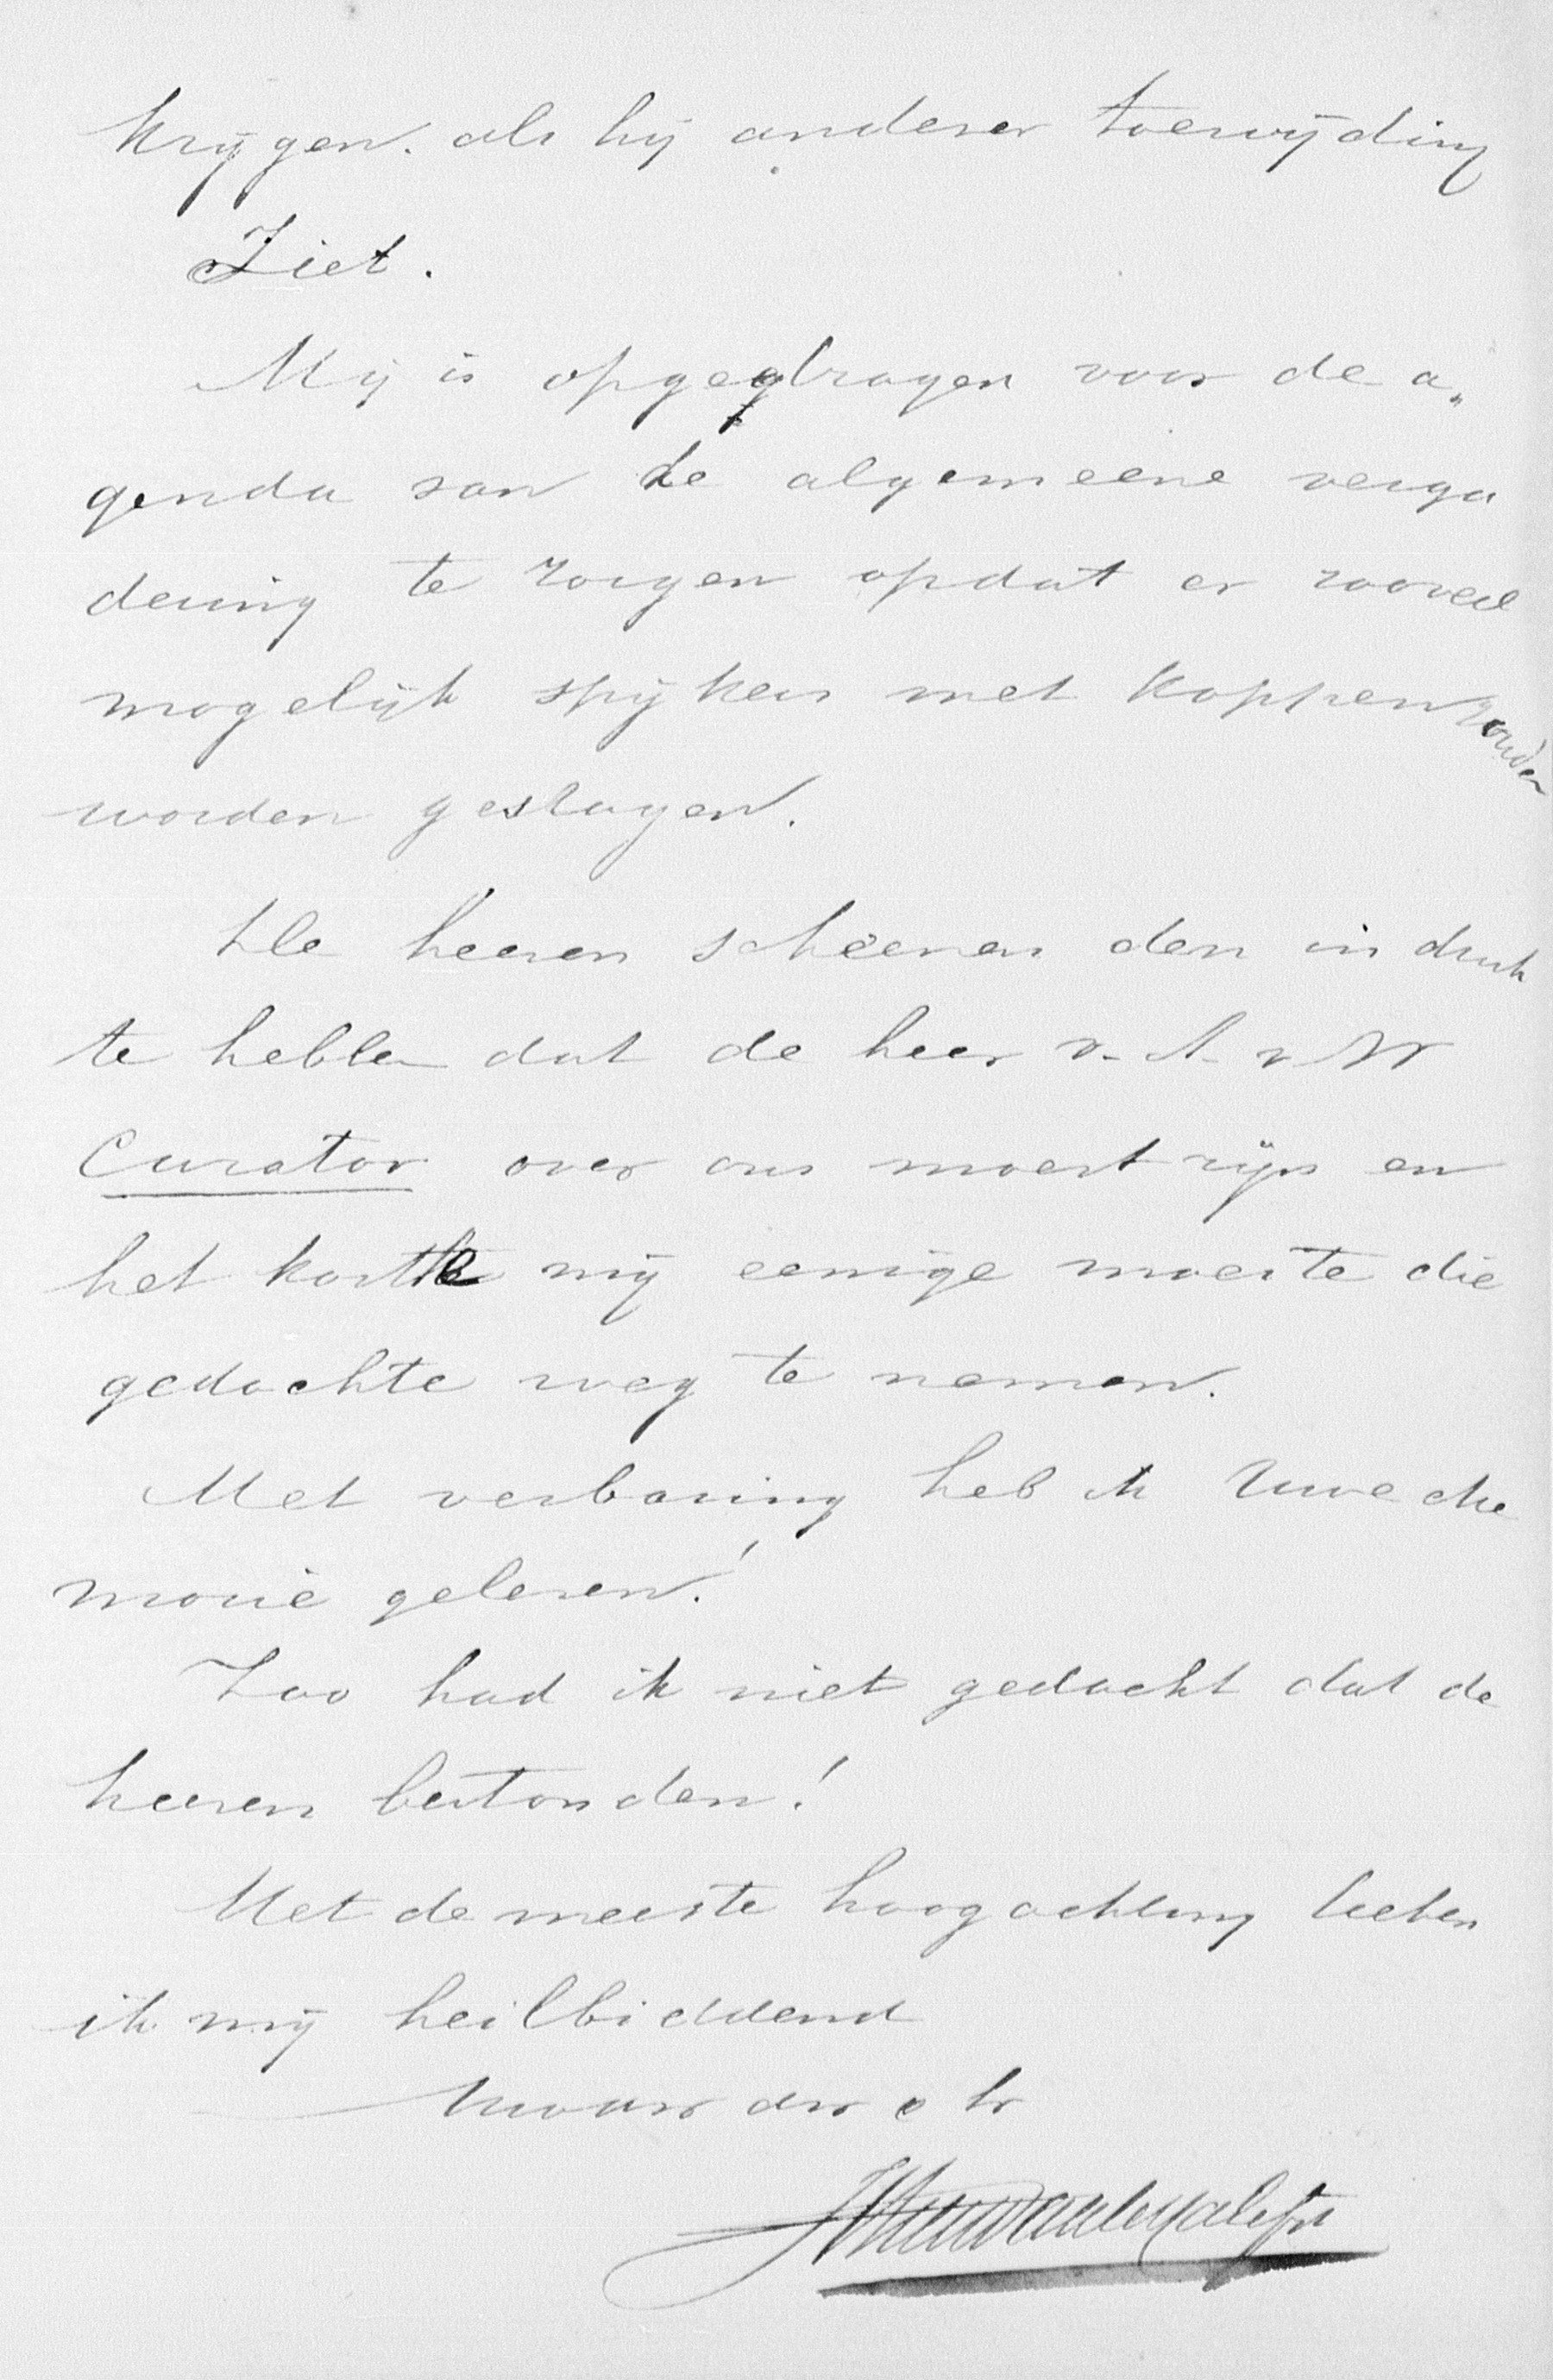 krijgen. als hij anderer toewijding
Ziet.
Mij is opgedragen voor de a„
genda van de algemeene verga
dering te zorgen opdat er zooveel
mogelijk spijkers met koppen zouden
worden geslagen.
De heeren scheenen den indruk
te hebben dat de heer v. A. v W
Curator over ons moest zijn en
het kostte mij eenige moeite die
gedachte weg te nemen.
Met verbazing heb ik Uwe me
morie gelezen!
Zoo had ik niet gedacht dat de
heeren bestonden!
Met de meeste hoogachting teeken
ik mij heilbiddend
Uw dw